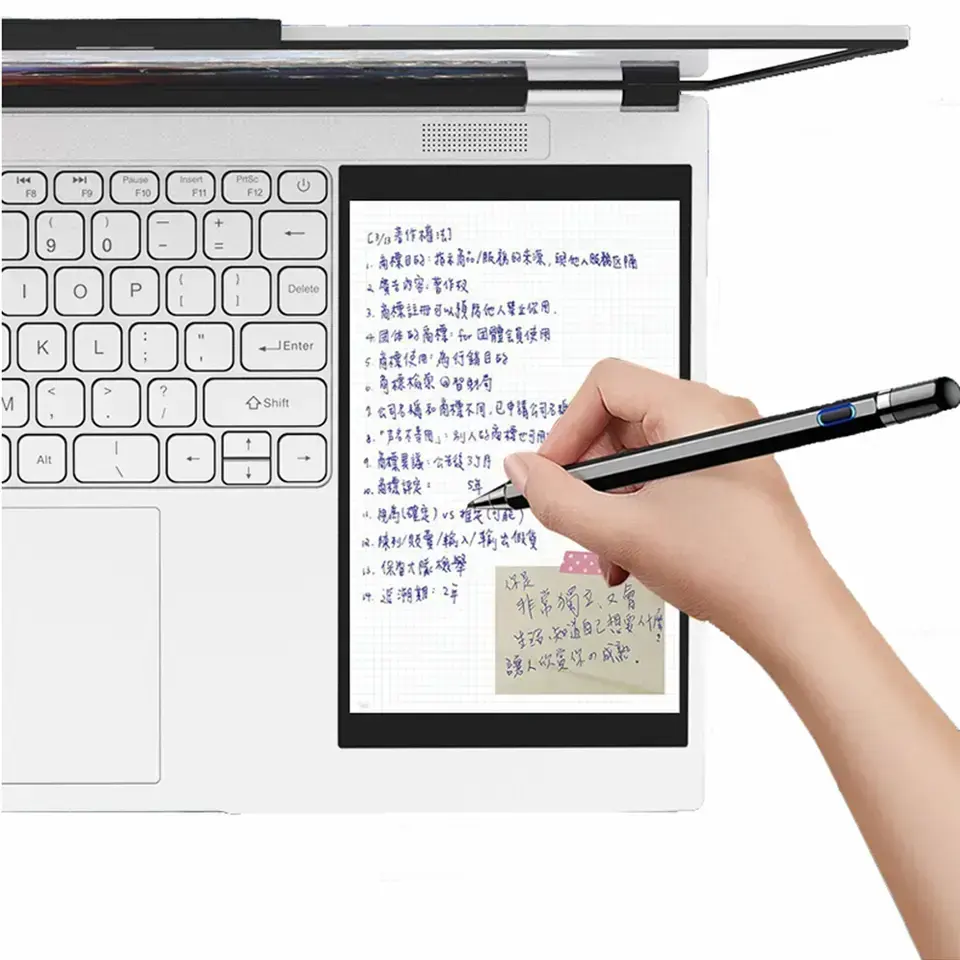 F8 F9 Pause F10 Insert F11 PrtSc F12
( 9 ) 0 — - + =
I O P { [ } ] Delete
K L : ; " ' Enter
M < , > . ? / Shift
Alt | \
[3/13 著作權法]
1. 商標目的：指示商品/服務的來源，與他人服務區隔
2. 廣告內容：著作权
3. 商標註冊可以預防他人禁止使用.
4. 团体的商標：for 团體会員使用
5. 商標使用：為行銷目的
6. 商標檢索@智財局
7. 公司名稱和商標不同，已申請公司名稱
8. 別人的商標也可用
9. 商標異議：公告後3ヶ月
10. 商標評定： 5年
11. (確定) vs 推定(可能)
12. 陳列/販賣/輸入/輸出假貨
13. 保智大隊：檢舉
14. 追溯期：2年
你是
非常獨立、又會
生活、知道自己想要什麼？
讓人欣賞你の成熟.